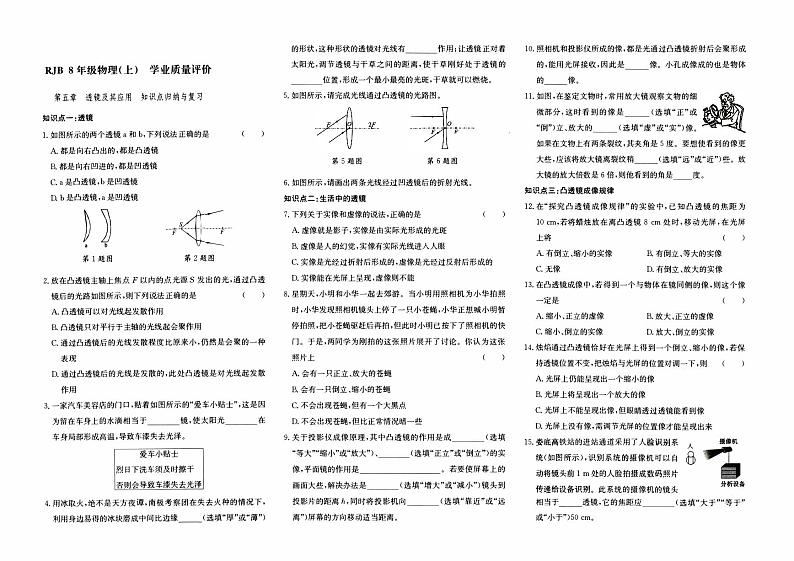 RJB 8年级物理(上) 学业质量评价
第五章 透镜及其应用 知识点归纳与复习
知识点一:透镜
1. 如图所示的两个透镜 a 和 b,下列说法正确的是 ( )
A. 都是向右凸出的,都是凸透镜
B. 都是向右凹进的,都是凹透镜
C. a 是凸透镜,b 是凹透镜
D. b 是凸透镜,a 是凹透镜
a b
F S O F
第1题图 第2题图
2. 放在凸透镜主轴上焦点 F 以内的点光源 S 发出的光,通过凸透
镜后的光路如图所示,则下列说法正确的是 ( )
A. 凸透镜可以对光线起发散作用
B. 凸透镜只对平行于主轴的光线起会聚作用
C. 通过凸透镜后的光线发散程度比原来小,仍然是会聚的一种
表现
D. 通过凸透镜后的光线是发散的,此处凸透镜是对光线起发散
作用
3. 一家汽车美容店的门口,贴着如图所示的“爱车小贴士”,这是因
为留在车身上的水滴相当于______镜,使太阳光______在
车身局部形成高温,导致车漆失去光泽。
爱车小贴士
烈日下洗车须及时擦干
否则会导致车漆失去光泽
4. 用冰取火,绝不是天方夜谭,南极考察团在失去火种的情况下,
利用身边易得的冰块磨成中间比边缘______(选填“厚”或“薄”)
的形状,这种形状的透镜对光线有______作用;让透镜正对着
太阳光,调节透镜与干草之间的距离,使干草刚好处于透镜的
______位置,形成一个最小最亮的光斑,干草就可以燃烧。
5. 如图所示,请完成光线通过凸透镜的光路图。
F O F F O F
第5题图 第6题图
6. 如图所示,请画出两条光线经过凹透镜后的折射光线。
知识点二:生活中的透镜
7. 下列关于实像和虚像的说法,正确的是 ( )
A. 虚像就是影子,实像是由实际光形成的光斑
B. 虚像是人的幻觉,实像有实际光线进入人眼
C. 实像是光经过折射后形成的,虚像是光经过反射后形成的
D. 实像能在光屏上呈现,虚像则不能
8. 星期天,小明和小华一起去郊游。当小明用照相机为小华拍照
时,小华发现照相机镜头上停了一只小苍蝇,小华正想喊小明暂
停拍照,把小苍蝇驱赶后再拍,但此时小明已按下了照相机的快
门。于是,两同学为刚拍的这张照片展开了讨论。你认为这张
照片上 ( )
A. 会有一只正立、放大的苍蝇
B. 会有一只倒立、缩小的苍蝇
C. 不会出现苍蝇,但有一个大黑点
D. 不会出现苍蝇,但比正常情况暗一些
9. 关于投影仪成像原理,其中凸透镜的作用是成______(选填
“等大”“缩小”或“放大”)、______(选填“正立”或“倒立”)的实
像,平面镜的作用是______________。若要使屏幕上的
画面大些,解决办法是______(选填“增大”或“减小”)镜头到
投影片的距离,同时将投影机向______(选填“靠近”或“远
离”)屏幕的方向移动适当距离。
10. 照相机和投影仪所成的像,都是光通过凸透镜折射后会聚形成
的,能用光屏接收,因此是______像。小孔成像成的也是物体
的______像。
11. 如图,在鉴定文物时,常用放大镜观察文物的细
微部分,这时看到的像是______(选填“正”或
“倒”)立、放大的______(选填“虚”或“实”)像。
如果在文物上有两条裂纹,其夹角是 5 度。要想使看到的像更
大些,应该将放大镜离裂纹稍______(选填“远”或“近”)些。放
大镜的放大倍数是 6 倍,则他看到的角是______度。
知识点三:凸透镜成像规律
12. 在“探究凸透镜成像规律”的实验中,已知凸透镜的焦距为
10 cm,若将蜡烛放在离凸透镜 8 cm 处时,移动光屏,在光屏
上将 ( )
A. 有倒立、缩小的实像 B. 有倒立、等大的实像
C. 无像 D. 有倒立、放大的实像
13. 在凸透镜成像中,若得到一个与物体在镜同侧的像,则这个像
一定是 ( )
A. 缩小、正立的虚像 B. 放大、正立的虚像
C. 缩小、倒立的实像 D. 放大、倒立的实像
14. 烛焰通过凸透镜恰好在光屏上得到一个倒立、缩小的像,若保
持透镜位置不变,把烛焰与光屏的位置对调一下,则 ( )
A. 光屏上仍能呈现出一个缩小的像
B. 光屏上将呈现出一个放大的像
C. 光屏上不能呈现出像,但眼睛透过透镜能看到像
D. 光屏上没有像,需调节光屏的位置像才能呈现出来
15. 娄底高铁站的进站通道采用了人脸识别系
统(如图所示),识别系统的摄像机可以自
动将镜头前 1 m 处的人脸拍摄成数码照片
传递给设备识别。此系统的摄像机的镜头
人
摄像机
分析设备
相当于______透镜,它的焦距应______(选填“大于”“等于”
或“小于”)50 cm。